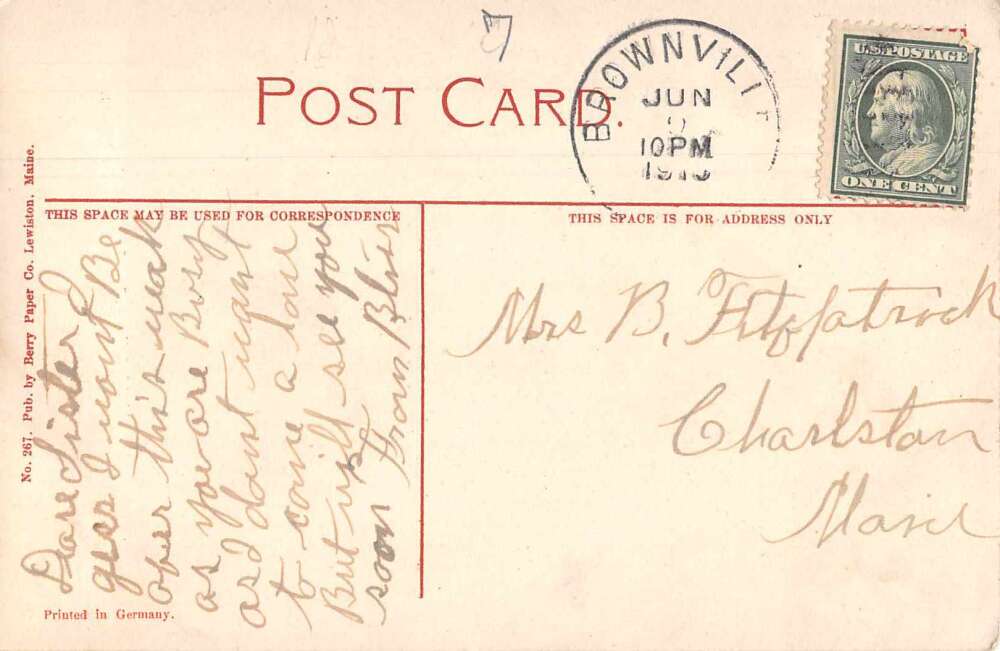 7
POST CARD.
BROWNVILL
JUN
10PM
1910
U.S. POSTAGE
ONE CENT
THIS SPACE MAY BE USED FOR CORRESPONDENCE
THIS SPACE IS FOR ADDRESS ONLY
No. 267. Pub. by Berry Paper Co. Lewiston. Maine.
Dare Sister
ges I wont Be
over this weak
as you are Busy
as I dont want
to come a lone
But will see you
soon From Bliss
Mrs B. Fitzpatrock
Charlston
Mane
Printed in Germany.